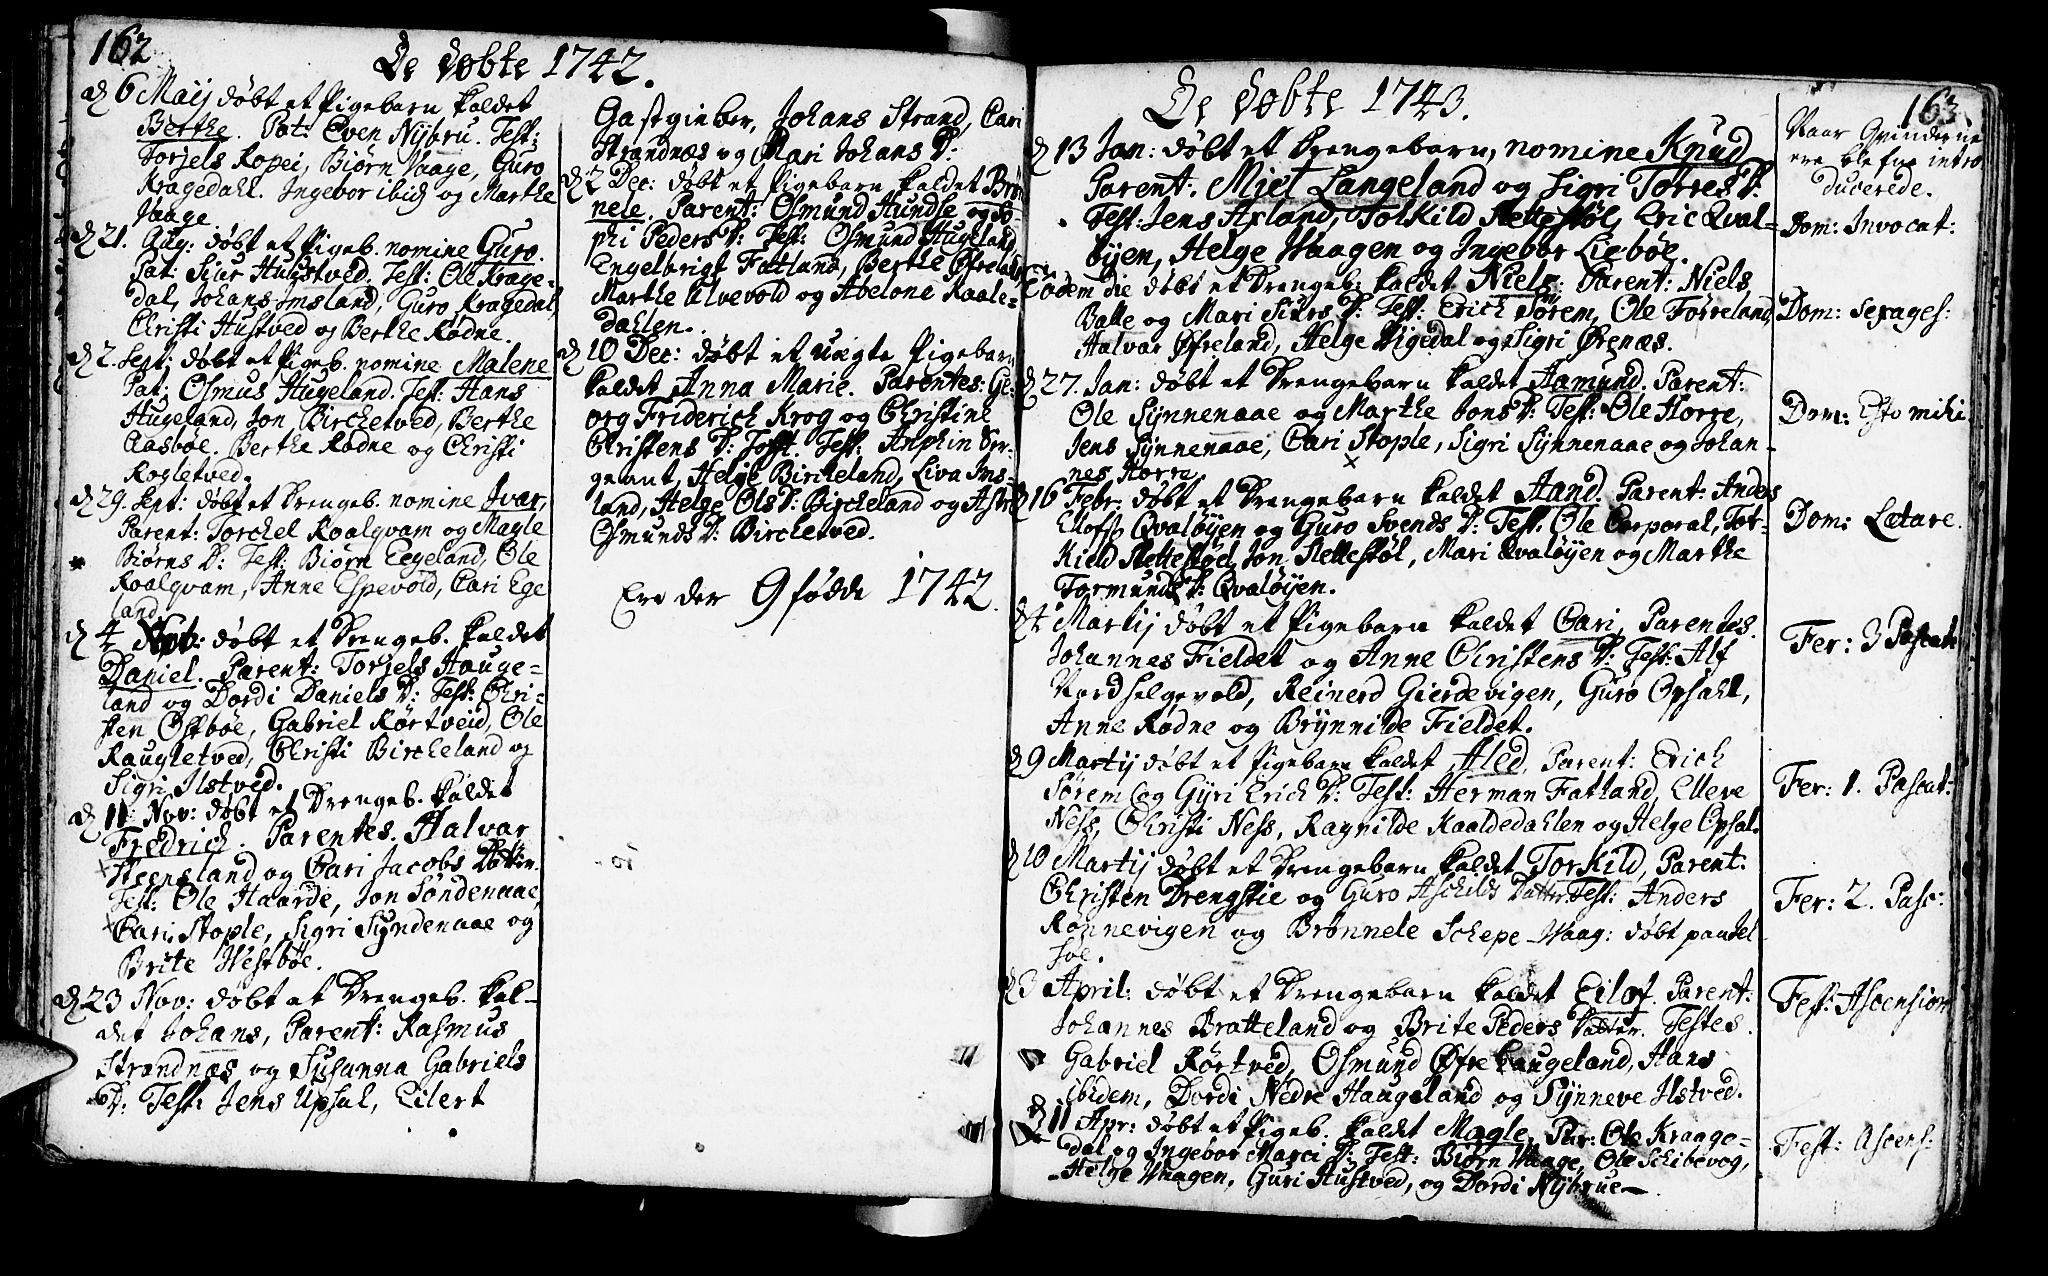 162
De døbte 1742.
d 6 Maij døbt et Pigebarn kaldet
Berthe. Pat: Even Nijbru. Test:
Torjels Ropei, Biørn Vaage, Guro
Kragedahl. Ingebor ibid, og Marthe
Vaage
d 21. Aug: døbt et Pigeb. nomine Guro.
Pat: Siur Hustved. Test: Ole Krage-
dal, Johans Imsland, Guro Kragedal,
Christi Hustved og Berthe Rødne.
d 2. Sept: døbt et Pigeb. nomine Malene
Pat: Osmus Hugeland. Test: Hans
Hugeland, Jon Birchetved, Berthe
Aasbøe. Berthe Rødne og Christi
Rogletved.
d 29. Sept: døbt et Drengeb. nomine Ivar,
Parent: Torchel Roalqvam og Magle
Biørns D: Test: Biørn Eegeland, Ole
Roalqvam, Anne Espevold, Cari Ege
land
d 4 døbt et Drengeb. kaldet
Daniel. Parent: Torjels Hauge-
land og Dordi Daniels D: Test: Chri-
sten Østbøe, Gabriel Rørtveid, Ole
Raugletved, Christi Bircheland og
Sigri Ilstved.
d 11 Nov: døbt et Drengeb. kaldet
Fredrich. Parentes. Halvar
Steensland og Cari Jacobs Datter.
Test: Ole Haarde, Jon Søndenaae,
Cari Stople, Sigri Syndenaae og
Brite Westbøe.
d 23 Nov: døbt et Drengeb. kal-
det Johans, Parent: Rasmus
Strandnæs og Susanna Gabriels
D: Test: Jens Upsal, Eilert
Gastgieber, Johans Strand, Cari
Strandnæs og Mari Johans D:
d 2 Dec: døbt et Pigebarn kaldet Brøn
nele. Parent: Osmund Hundse og So
phi Peders D: Test: Osmund Hugeland,
Engelbrigt Fatland, Berthe Øfreland,
Marthe Alvevold og Abelone Kaale-
dahlen.
d 10 Dec: døbt et uægte Pigebarn
kaldet Anna Marie. Parentes: Ge-
org Friderich Krog og Christine
Christens D: Tofft. Test: Anphin Ser-
geant, Helge Bircheland, Liva Ims-
land, Helge Ols D: Bircheland og Astri
Osmunds D: Birchetved.
Ere der 9 fødde 1742.
163.
De døbte 1743.
Naar Qvinderne
ere blefne intro
ducerede.
d 13 Jan: døbt et Drengebarn, nomine Knud
Parent. Miel Langeland og Sigri Torres D:
Test: Jens Axland, Tolkild Stettestøl, Eric Qval-
øyen, Helge Waagen og Ingebor Liebøe.
Dom: Invocat:
Eodem die døbt et Drengeb: kaldet Niels: Parent: Niels
Balle og Mari Siurs D: Test: Erich Sørem, Ole Førreland,
Halvar Øfreland, Helge Vigedal og Sigri Ørenæs.
Dom: Sexages:
d 27. Jan: døbt et Drengebarn kaldet Aamund. Parent:
Ole Synnenaae og Marthe Jons D: Test: Ole Horre,
Jens Synnenaae, Cari Stople, Sigri Synnenaae og Johan-
nes Horre
Dom: Esto mihi.
d 16 Febr: døbt et Drengebarn kaldet Aand. Parent: Anders
Elofs Qvaløyen og Guro Svends D: Test. Ole Corporal, Tor-
kield Stettestøel, Jon Stettestøl, Mari Qvaløyen og Marthe
Tormunds D: Qvaløyen.
Dom: Lætare.
d 4 Martij døbt et Pigebarn kaldet Cari, Parentes.
Johannes Fieldet og Anne Christens D: Test: Alf
Nordselgevold, Reinerd Gierdevigen, Guro Opsahl,
Anne Rødne og Brynnilde Fieldet.
Fer: 3 Pascat:
d 9 Martij døbt et Pigebarn kaldet Aled. Parent: Erich
Sørem og Gyri Erich D: Test: Herman Fatland, Elleve
Ness, Christi Ness, Ragnilde Kaaldedahlen og Helge Opsal.
Fer: 1. Pascat:
d 10 Martij døbt et Drengebarn kaldet Torkild, Parent:
Christen Drengstie og Guro Aschilds Datter Test: Anders
Rønnevigen og Brønnele Schepe-Waag: døbt paa Jel
søe.
Fer: 2. Pasc:
d 3 April: døbt et Drengebarn kaldet Eilof. Parent:
Johannes Bratteland og Brite Peders Datter. Testes.
Gabriel Rørtved, Osmund Øfre Haugeland, Hans
ibidem, Dordi Nedre Haugeland og Synneve Ilstved.
Fest: Ascension
d 11 Apr: døbt et Pigeb. kaldt Magle, Par: Ole Kraage-
dal og Ingebor Marci D: Test: Biørn Waage, Ole Schibevog,
Helge Waagen, Guri Hustved, og Dordi Nybrue.
Fest: Ascens: